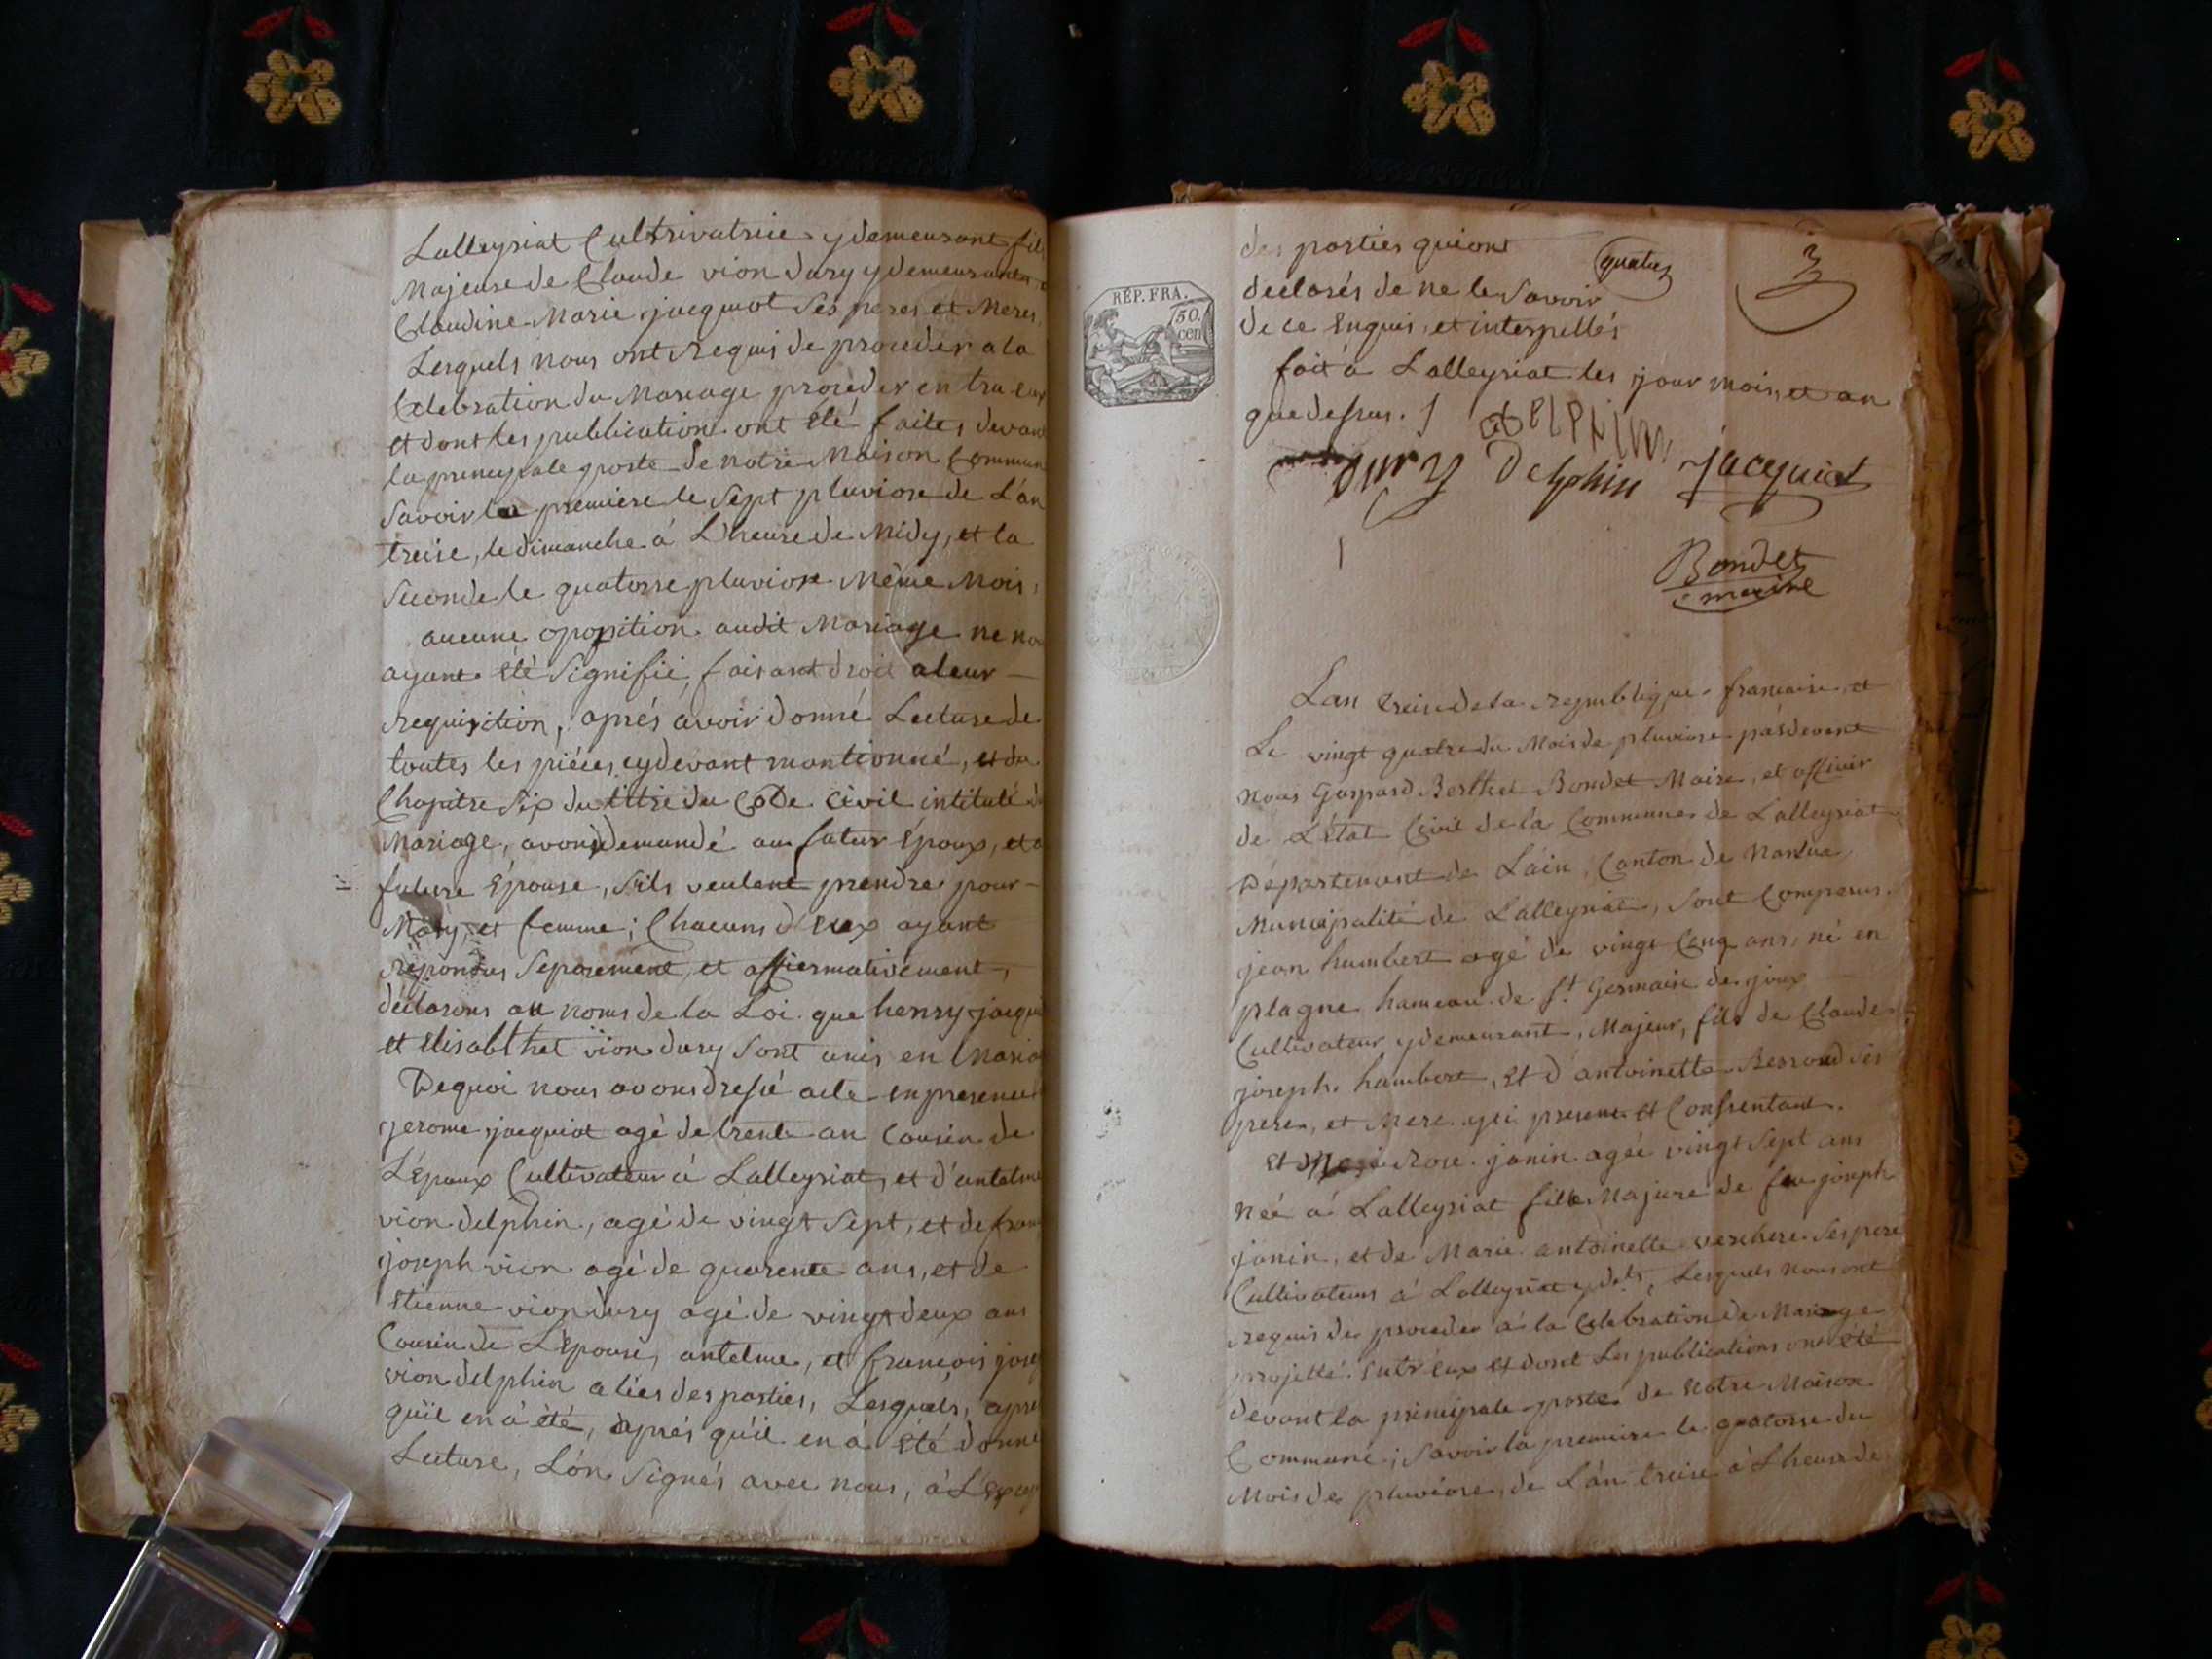 Lalleyriat Cultrivatrice ydemeurant fil
Majeure de Claude vion dury ydemeurant
Claudine Marie jacquiot Ses peres et Meres
Lesquels nous ont requis de proceder a la
Celebration du Mariage projeder entru eux
et dont les publication ont été faites devan
la principale porte de notre Maison Commun
Savoir la premiere le Sept pluviose de L'an
treise, le dimanche á L'heure de Midy, et la
Seconde le quatorse pluviose Même Mois,
aucune oposition audit Mariage ne no
ayant été Signifié, faisant droit aleur
requisition, aprés avoir donné Lecture de
toutes les piéces cydevant mantionné, et du
Chapitre Six du titre du Code Civil intitulé d
Mariage, avons demandé au futur Epoux, et a
future Epouse, S'ils veulent prendre pour
Mary, et femme; Chacuns d'eux ayant
répondus Séparement, et affiermativement,
déclarons au noms de la Loi que henry jacqui
et Elisabthet vion dury Sont unis en Maria
Dequoi nous avons dressé acte en presence
jerome jacquiot agé de trente an Cousin de
L'Epoux Cultivateur á Lalleyriat, et d'antelme
vion delphin, agé de vingt Sept, et de fran
joseph vion agé de quarente ans, et de
Etienne vion dury agé de vingt deux ans
Cousin de L'Epouse, antelme, et francois jose
vion delphin aliés des parties, Lesquels, apré
qu'il en á été, aprés qu'il en á été donné
Lecture, L'on Signés avec nous, á L'Excep
des parties qui ont
quatre
3
déclarés de ne le Savoir
de ce Enquis, et interpellés
RÉP. FRA.
50
cen
fait á Lalleyriat les jour mois, et an
que dessus.
DELPHIN
dury Delphin jacquiot
Bondet
maire
Lan treise de la republique francaise, et
Le vingt quatre du Mois de pluviose pardevant
nous Gaspard Berthet Bondet Maire, et officier
de L'Etat Civil de la Commune de Lalleyriat
Département de Láin, Canton de Nantua,
Municipalité de Lalleyriat, Sont Comparus
jean humbert agé de vingt Cinq ans, né en
plagne hameau de St Germain de joux
Cultivateur ydemeurant, Majeur, fils de Claude
joseph humbert, Et d'antoinette Ses
pere, et Mere yci present et Consentant.
Et Rose janin agée vingt Sept ans
née á Lalleyriat fille Majeure de feu joseph
janin, et de Marie antoinette verchere Ses pere
Cultivateurs á Lalleyriat y dts, Lesquels nous ont
requis de proceder á la Celebration du Mariage
projetté Entr'eux et dont Les publications ont été
devant la principale porte de Notre Maison
Commune; Savoir la premiere le quatorse du
Mois de pluviose, de L'án treise á L'heure de